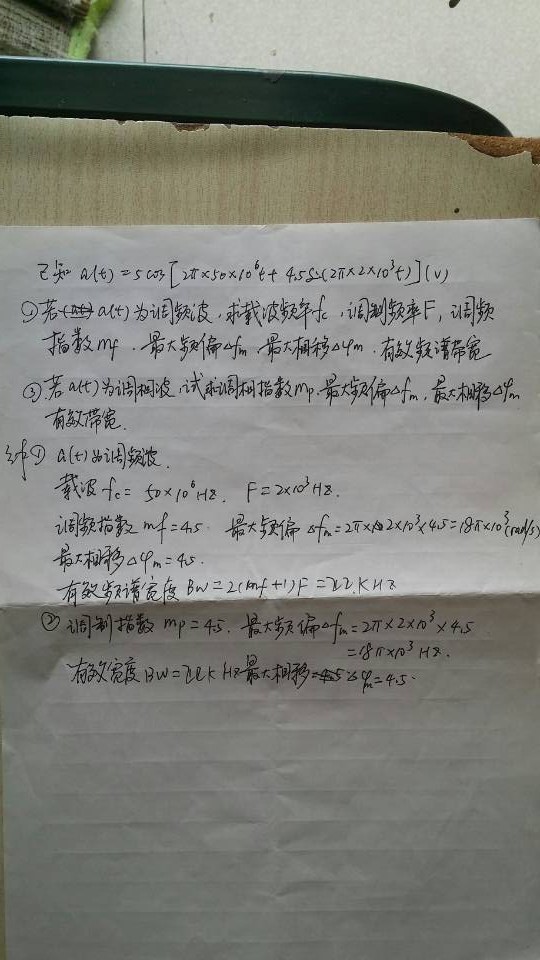 已知 a(t) = 5 cos [2π×50×10⁶t + 4.5 sin(2π×2×10³t)] (v)
① 若 a(t) 为调频波,求载波频率fc,调制频率F,调频
指数mf,最大频偏Δfm,最大相移Δφm,有效频谱带宽
② 若a(t)为调相波,试求调相指数mp,最大频偏Δfm,最大相移Δφm
有效带宽.
解① a(t)为调频波.
载波 fc = 50×10⁶Hz. F=2×10³Hz.
调频指数 mf=4.5. 最大频偏 Δfm=2π×2×10³×4.5=18π×10³(rad/s)
最大相移Δφm=4.5.
有效频谱宽度 BW=2(mf+1)F=22.KHz
② 调制指数 mp=4.5. 最大频偏Δfm=2π×2×10³×4.5
=18π×10³Hz.
有效宽度 BW=22KHz 最大相移 Δφm=4.5.